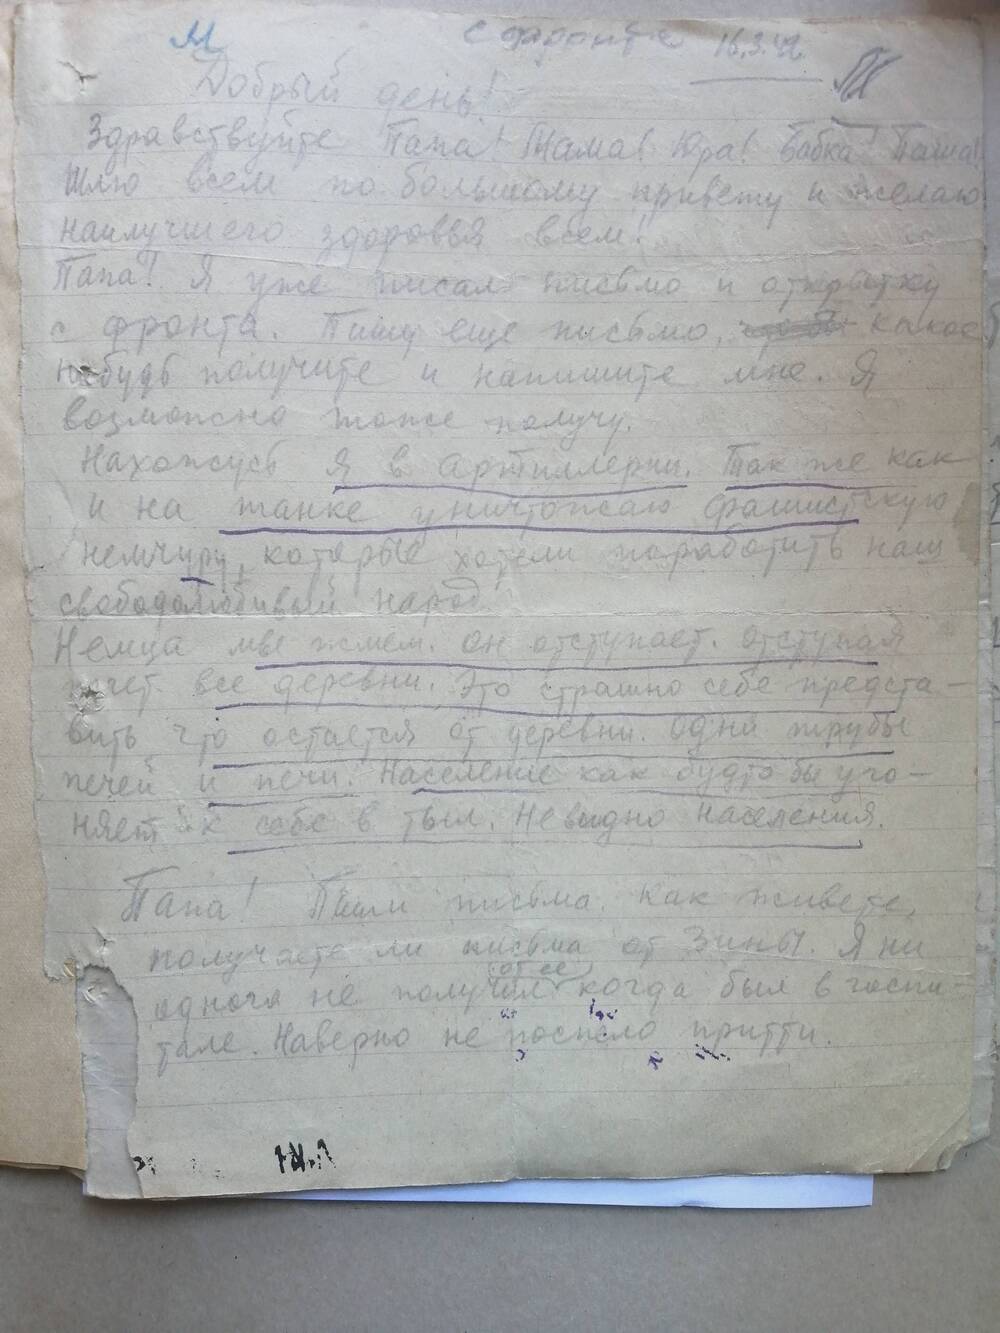 М с фронта 16.3.42
Добрый день!
Здравствуйте Папа! Мама! Юра! Вовка! Паша!
Шлю всем по большому привету и желаю
наилучшего здоровья всем!
Папа! Я уже писал письмо и открытку
с фронта. Пишу еще письмо, какое
нибудь получите и напишите мне. Я
возможно тоже получу.
Нахожусь я в артиллерии. Так же как
и на танке уничтожаю фашистскую
немчуру, которые хотели поработить наш
свободолюбивый народ.
Немца мы жмем. он отступает. отступая
жгет все деревни. Это страшно себе предста-
вить что остается от деревни. одни трубы
печей и печи. Население как будто бы уго-
няет к себе в тыл. Невидно населения.
Папа! Пиши письма. как живете,
получаете ли письма от Зины. Я ни
одного не получил от ее когда был в госпи-
тале. Наверно не поспело притти.